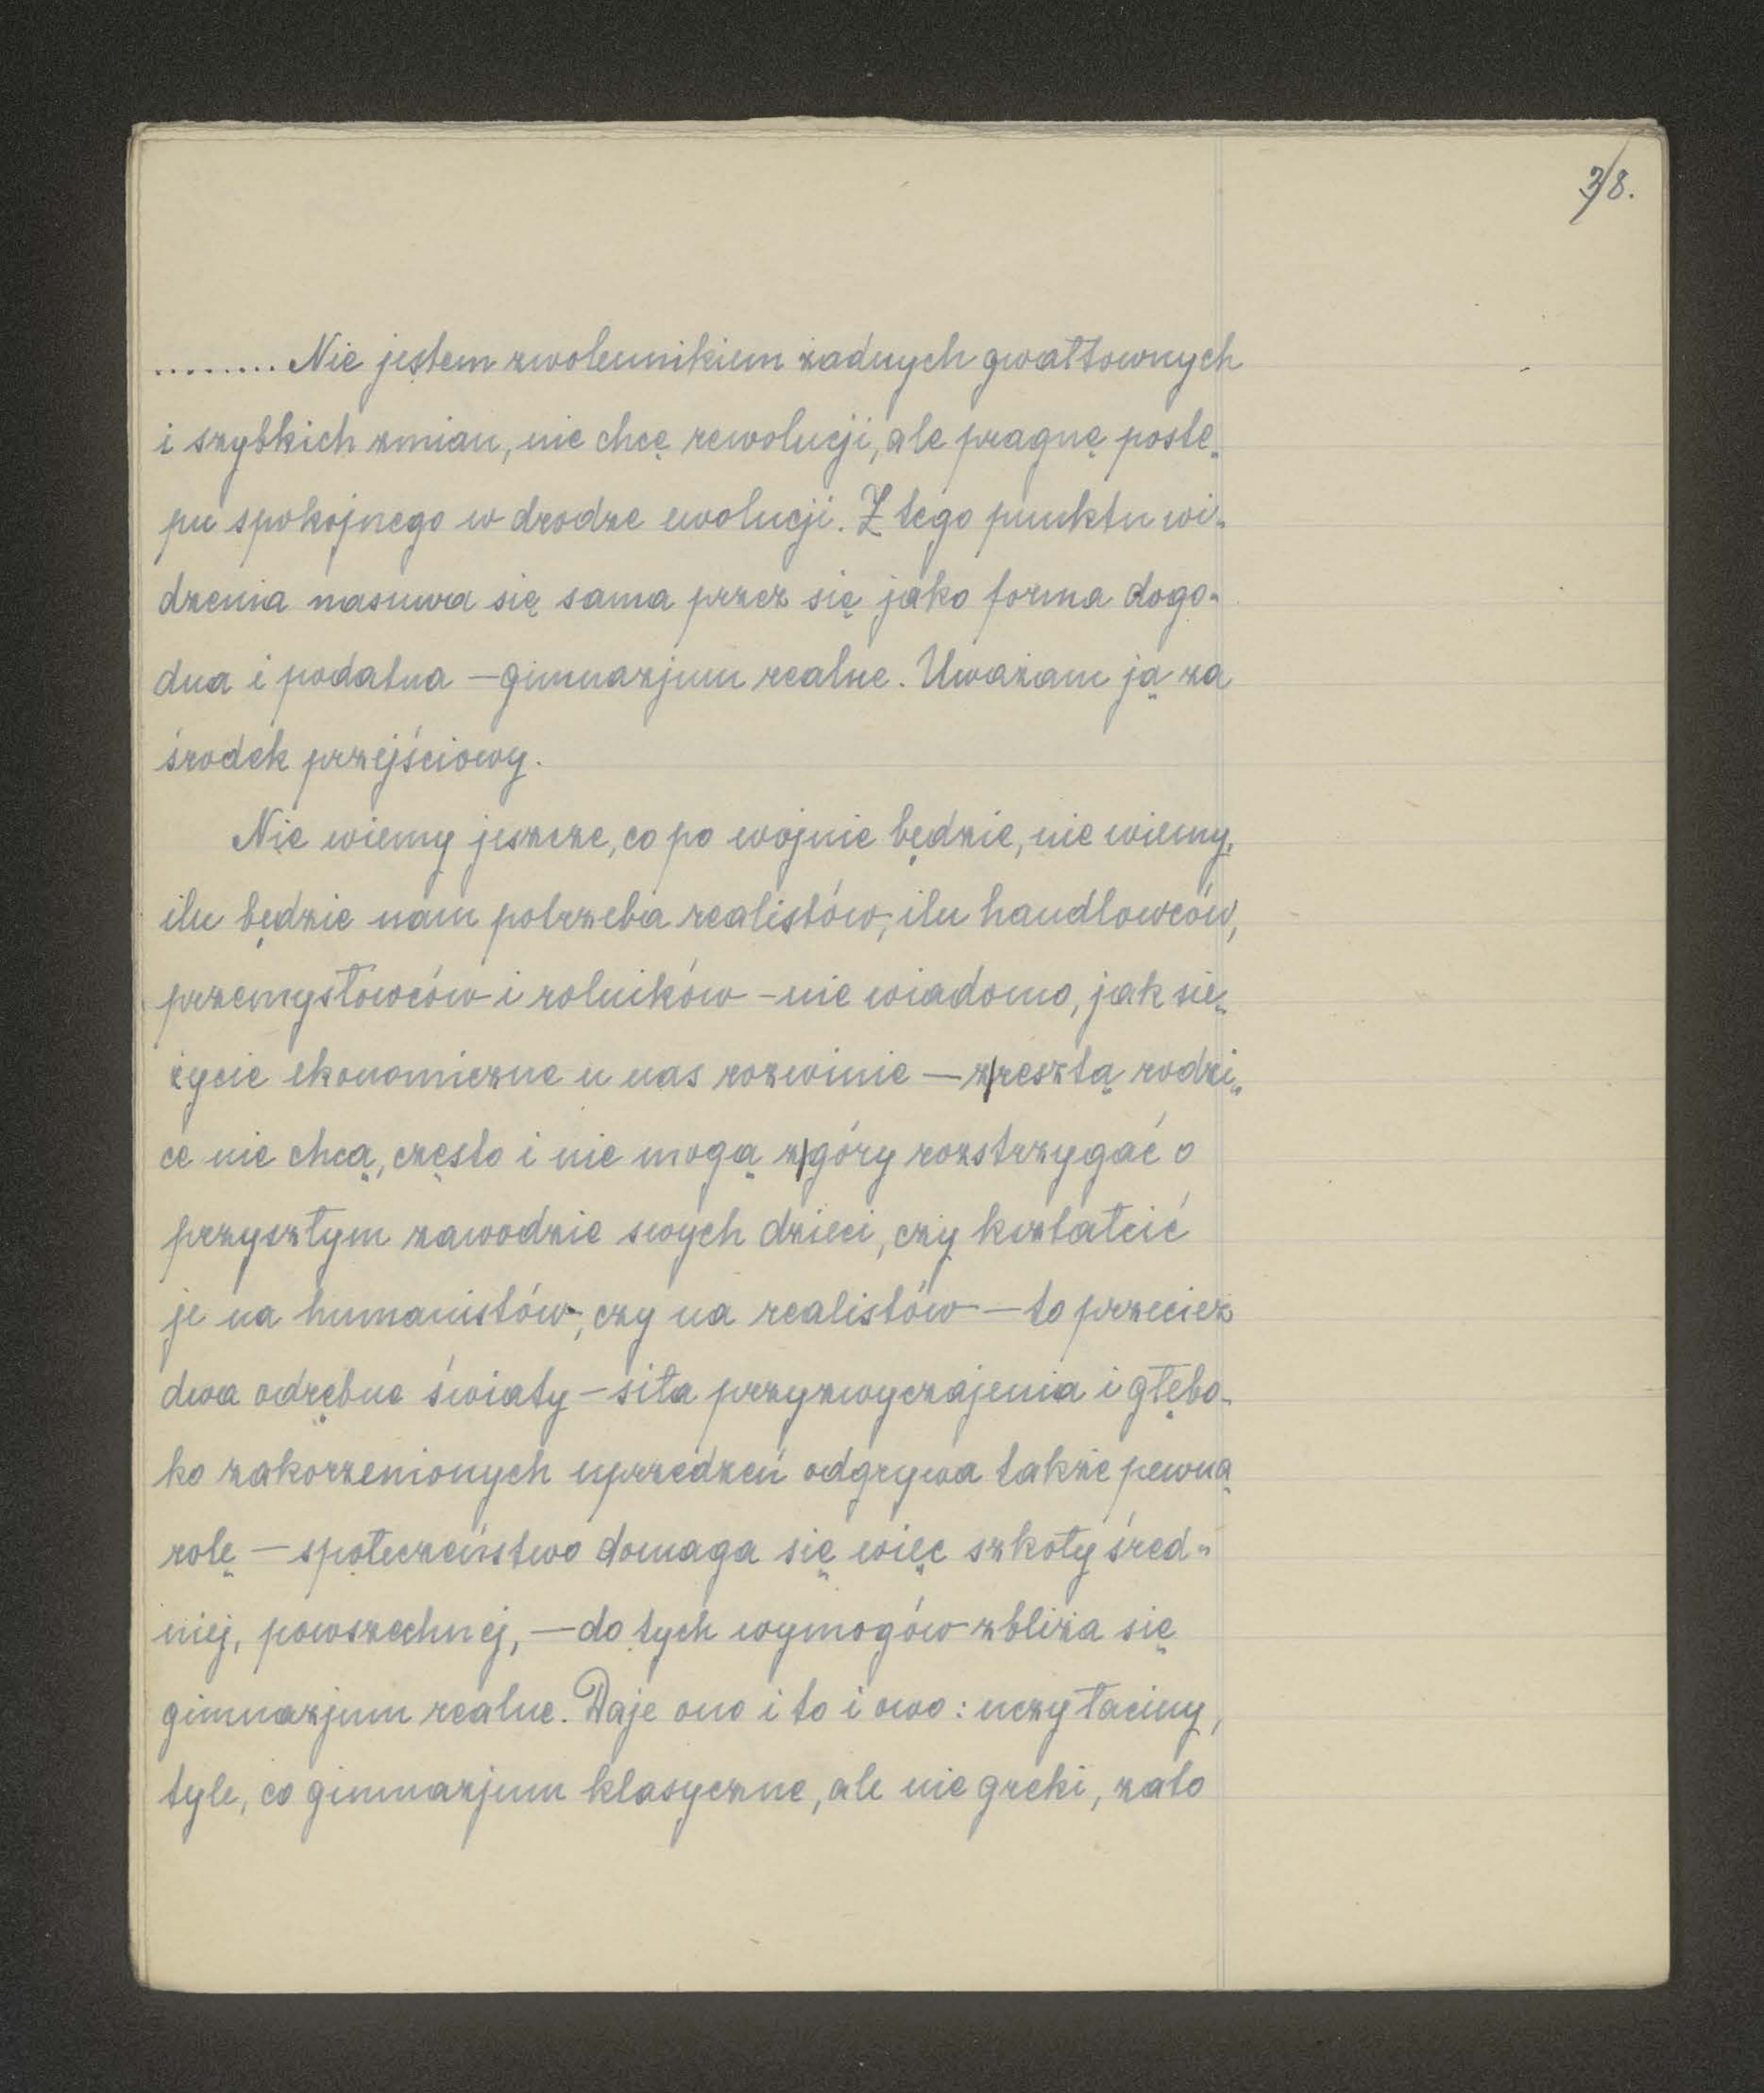 38.
........ Nie jestem zwolennikiem żadnych gwałtownych
i szybkich zmian, nie chcę rewolucji, ale pragnę postę-
pu spokojnego w drodze ewolucji. Z tego punktu wi-
dzenia nasuwa się sama przez się jako forma dogo-
dna i podatna — gimnazjum realne. Uważam ją za
środek przejściowy.
Nie wiemy jeszcze, co po wojnie będzie, nie wiemy,
ilu będzie nam potrzeba realistów, ilu handlowców,
przemysłowców i rolników – nie wiadomo, jak się
życie ekonomiczne u nas rozwinie — z|resztą rodzi-
ce nie chcą, często i nie mogą z|góry rozstrzygać o
przyszłym zawodzie swych dzieci, czy kształcić
je na humanistów, czy na realistów — to przecież
dwa odrębne światy – siła przyzwyczajenia i głębo-
ko zakorzenionych uprzedzeń odgrywa także pewną
rolę — społeczeństwo domaga się więc szkoły śred-
niej, powszechnej, — do tych wymogów zbliża się
gimnazjum realne. Daje ono i to i owo: uczy łaciny,
tyle, co gimnazjum klasyczne, ale nie greki, zato